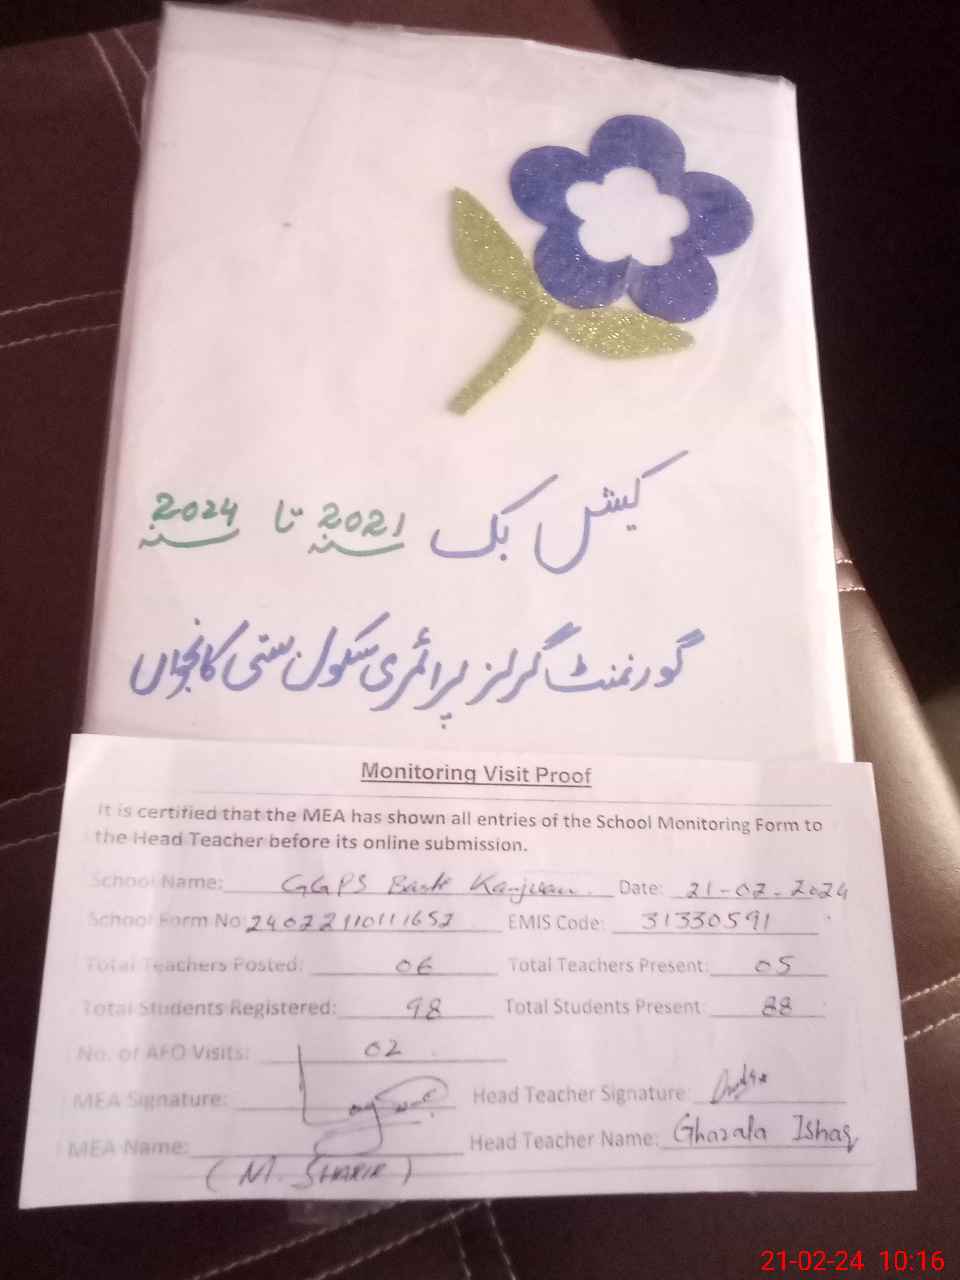 کیش بک 2021 تا 2024
گورنمنٹ گرلز پرائمری سکول بستی کانجواں
Monitoring Visit Proof
It is certified that the MEA has shown all entries of the School Monitoring Form to
the Head Teacher before its online submission.
School Name: GGPS Basti Kanjwan. Date: 21-02-2024
School Form No: 24022110111652 EMIS Code: 31330591
Total Teachers Posted: 06 Total Teachers Present: 05
Total Students Registered: 98 Total Students Present: 88
No. of AEO Visits: 02
MEA Signature: Head Teacher Signature:
MEA Name: Head Teacher Name: Ghazala Ishaq
(M. SHARIF)
21-02-24 10:16